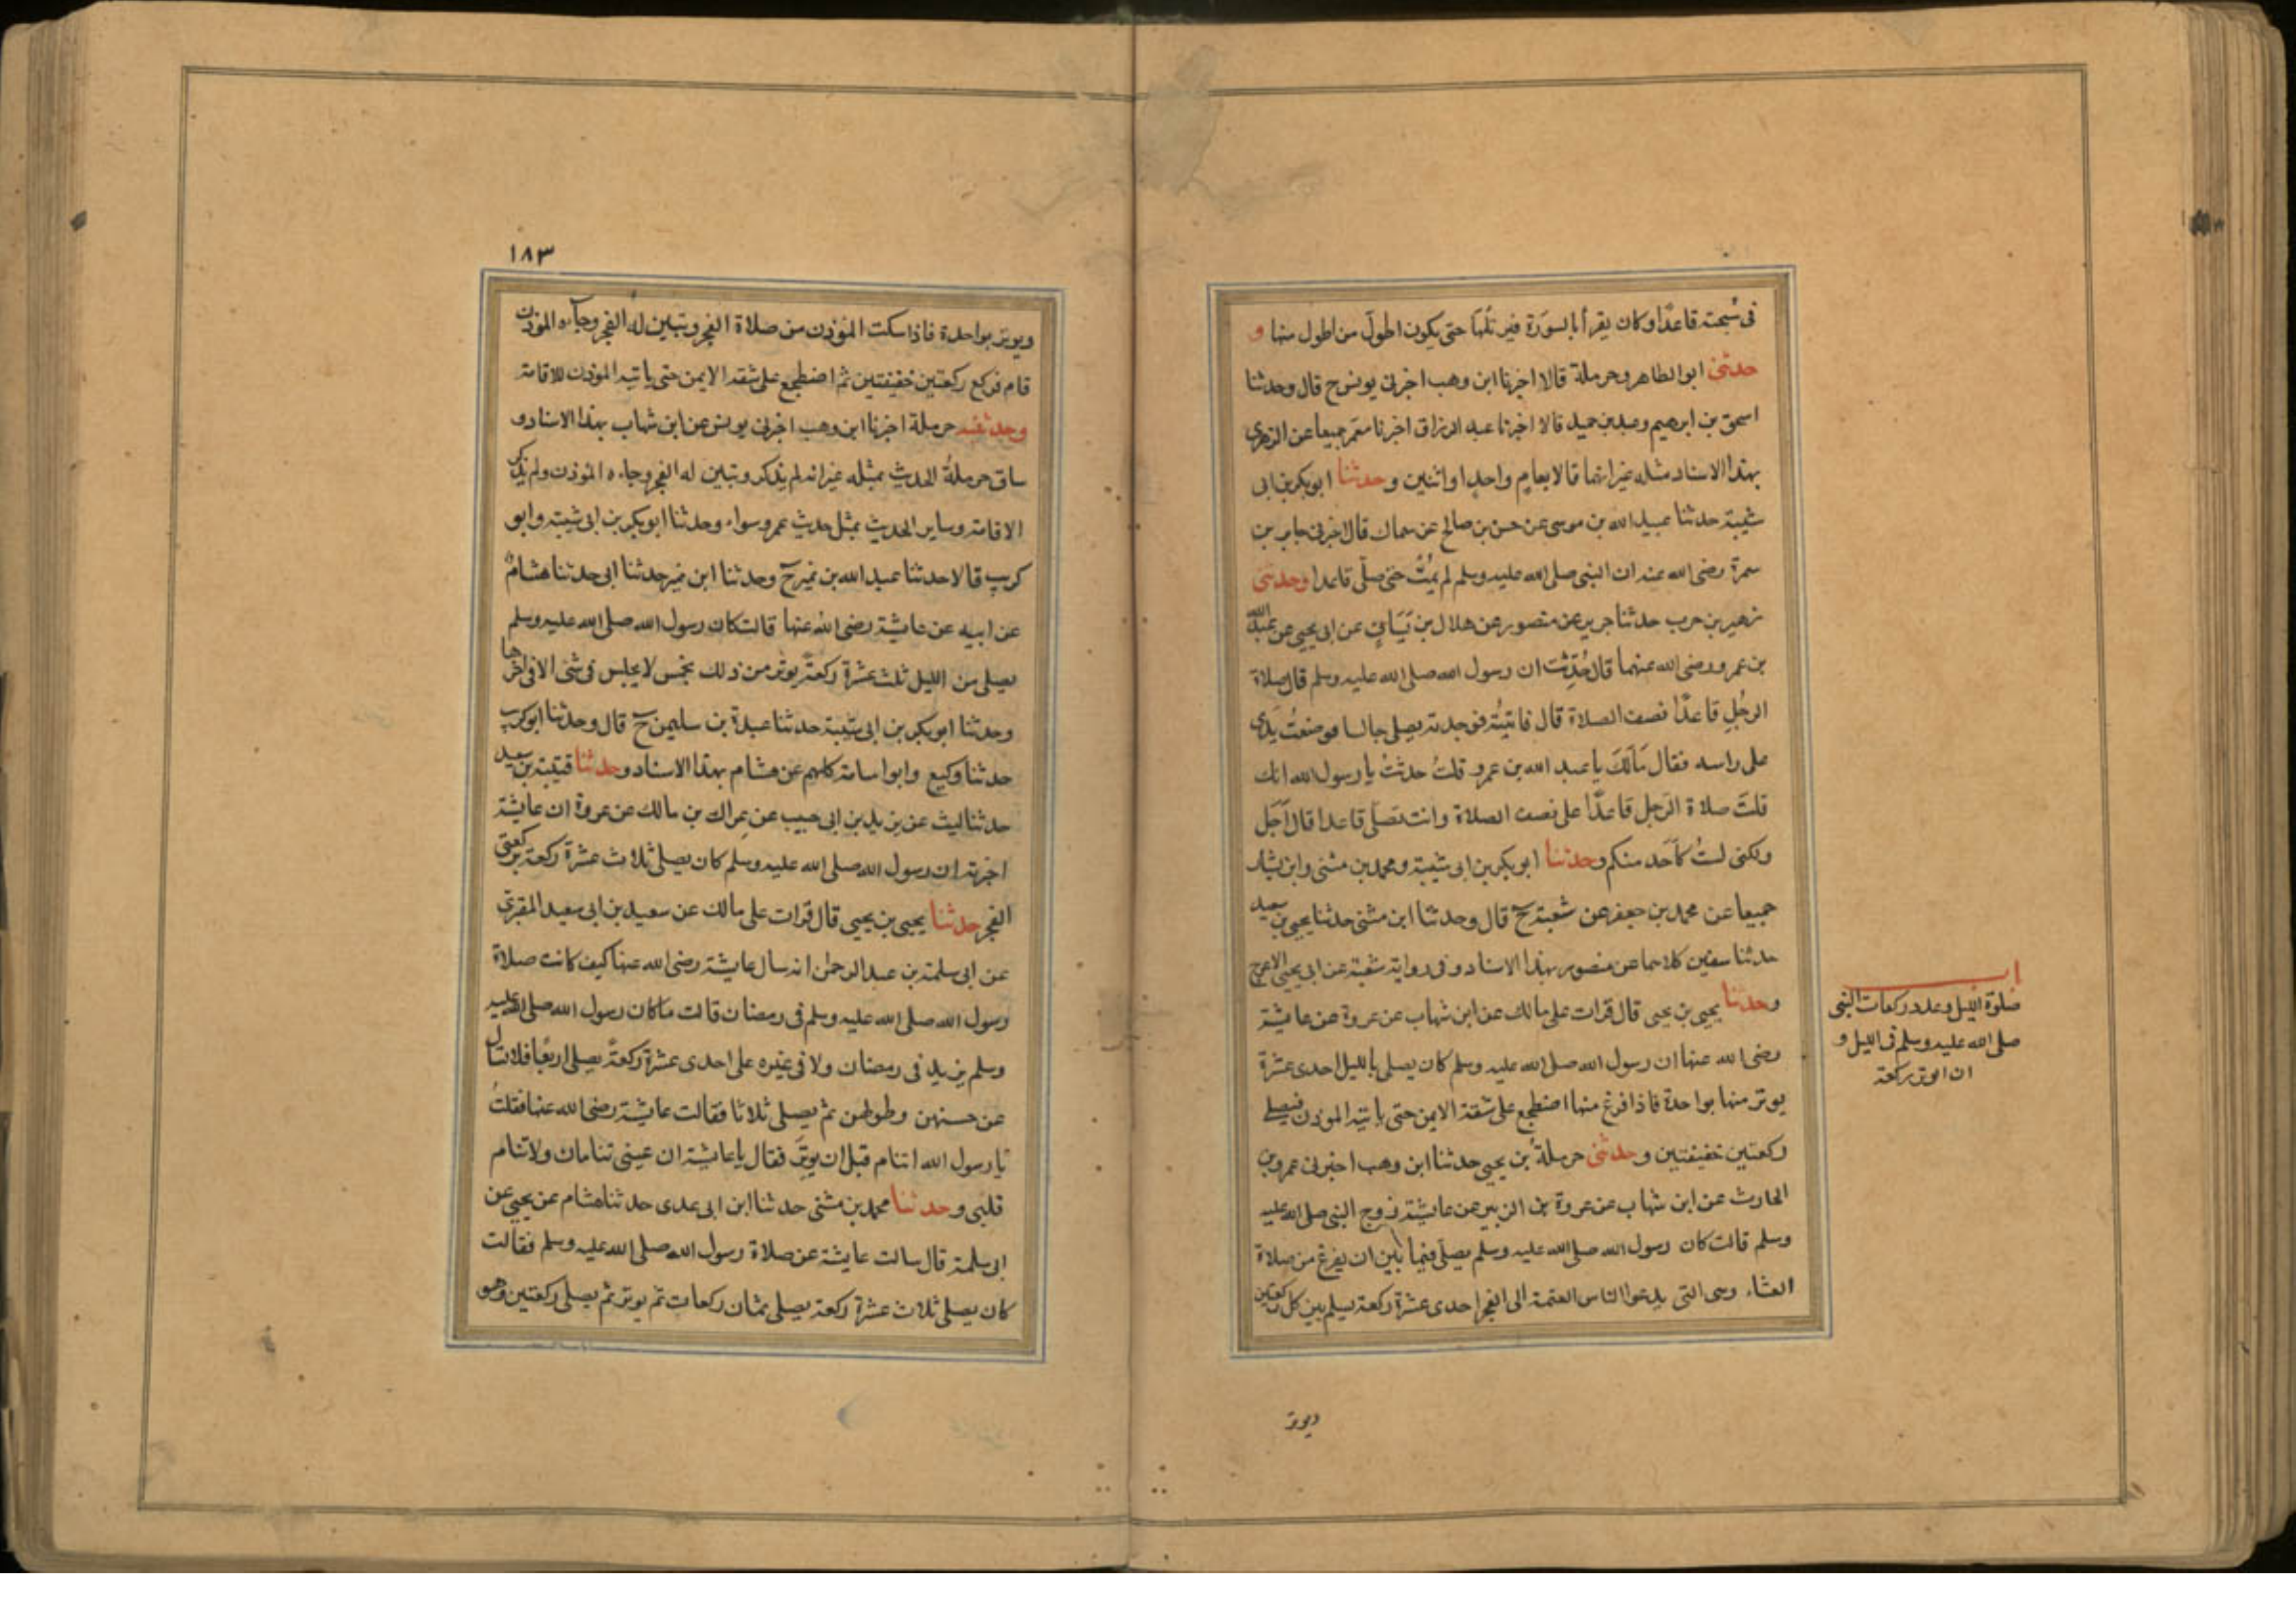 فى سُبحته قاعدًا وكان يقرأ بالسورة فيرتلها حتى يكون اطول من اطول منها و
حدثنى ابو الطاهر وحرملة قالا اخبرنا ابن وهب اخبرنى يونس ح قال وحدثنا
اسحق بن ابرهيم وعبد بن حميد قالا اخبرنا عبد الرزاق اخبرنا معمر جميعا عن الزهرى
بهذا الاسناد مثله غير انهما قالا بعام واحد او اثنين وحدثنا ابو بكر بن ابى
شيبة حدثنا عبيد الله بن موسى عن حسن بن صالح عن سماك قال اخبرنى جابر بن
سمرة رضى الله عنه ان النبى صلى الله عليه وسلم لم يمُتْ حتى صلّى قاعدا وحدثنى
زهير بن حرب حدثنا جرير عن منصور عن هلال بن يَسَافٍ عن ابى يحيى عن عبد الله
بن عمرو رضى الله عنهما قال حُدِّثت ان رسول الله صلى الله عليه وسلم قال صلاة
الرجُلِ قاعدًا نصف الصلاة قال فاتيتُه فوجدته يصلى جالسا فوضعتُ يدى
على راسه فقال مَالَكَ يا عبد الله بن عمرو قلتُ حدثتُ يا رسول الله انك
قلتَ صلاة الرجل قاعدًا على نصف الصلاة وانت تصلى قاعدا قال اَجَل
ولكنى لستُ كأحد منكم وحدثنا ابو بكر بن ابى شيبة ومحمد بن مثنى وابن بشار
جميعا عن محمد بن جعفر عن شعبة ح قال وحدثنا ابن مثنى حدثنا يحيى بن سعيد
حدثنا سفين كلاهما عن منصور بهذا الاسناد وفى رواية شعبة عن ابى يحيى الاعرج
وحدثنا يحيى بن يحيى قال قرات على مالك عن ابن شهاب عن عروة عن عايشة
رضى الله عنها ان رسول الله صلى الله عليه وسلم كان يصلى بالليل احدى عشرة
يوتر منها بواحدة فاذا فرغ منها اضطجع على شقه الايمن حتى ياتيه الموذن فيصلى
ركعتين خفيفتين وحدثنى حرملةُ بن يحيى حدثنا ابن وهب اخبرنى عمرو بن
الحارث عن ابن شهاب عن عروة بن الزبير عن عايشة زوج النبى صلى الله عليه
وسلم قالت كان رسول الله صلى الله عليه وسلم يصلى فيما بين ان يفرغ من صلاة
العشاء وهى التى يدعوا الناس العتمة الى الفجر احدى عشرة ركعة يسلم بين كل ركعتين
ويوتر
باب
صلوة الليل وعدد ركعات النبى
صلى الله عليه وسلم فى الليل و
ان الوتر ركعة
١٨٣
ويوتر بواحدة فاذا سكت المؤذن من صلاة الفجر وتبين له الفجر وجاءه الموذن
قام فركع ركعتين خفيفتين ثم اضطجع على شقه الايمن حتى ياتيه الموذن للاقامة
وحدثنيه حرملة اخبرنا ابن وهب اخبرنى يونس عن ابن شهاب بهذا الاسناد و
ساق حرملةُ الحديث بمثله غير انه لم يذكر وتبين له الفجر وجاءه المؤذن ولم يذكر
الاقامة وساير الحديث بمثل حديث عمرو سواء وحدثنا ابو بكر بن ابى شيبة وابو
كريب قالا حدثنا عبد الله بن نمير ح وحدثنا ابن نمير حدثنا ابى حدثنا هشامٌ
عن ابيه عن عايشة رضى الله عنها قالت كان رسول الله صلى الله عليه وسلم
يصلى من الليل ثلث عشرة ركعة يوتر من ذلك بخمس لا يجلس فى شئ الا فى اخرها
وحدثنا ابو بكر بن ابى شيبة حدثنا عبدة بن سليمن ح قال وحدثنا ابو كريب
حدثنا وكيع وابو اسامة كلهم عن هشام بهذا الاسناد وحدثنا قتيبة بن سعيد
حدثنا ليث عن يزيد بن ابى حبيب عن عِراك بن مالك عن عروة ان عايشة
اخبرته ان رسول الله صلى الله عليه وسلم كان يصلى ثلاث عشرة ركعة بركعتى
الفجر حدثنا يحيى بن يحيى قال قرات على مالك عن سعيد بن ابى سعيد المقبرى
عن ابى سلمة بن عبد الرحمن انه سال عايشة رضى الله عنها كيف كانت صلاة
رسول الله صلى الله عليه وسلم فى رمضان قالت ما كان رسول الله صلى الله عليه
وسلم يزيد فى رمضان ولا فى غيره على احدى عشرة ركعةً يصلى اربعًا فلا تسال
عن حسنهن وطولهن ثم يصلى ثلاثا فقالت عايشة رضى الله عنها فقلتُ
يا رسول الله اتنام قبل ان يوتر فقال يا عايشة ان عينى تنامان ولا تنام
قلبى وحدثنا محمد بن مثنى حدثنا ابن ابى عدى حدثنا هشام عن يحيى عن
ابى سلمة قال سالت عايشة عن صلاة رسول الله صلى الله عليه وسلم فقالت
كان يصلى ثلاث عشرة ركعة يصلى بثمان ركعات ثم يوتر ثم يصلى ركعتين وهو